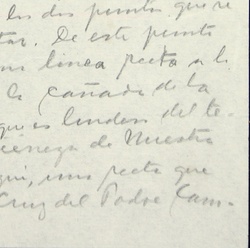 los dos puntos que re
tar. De este punto
una linea recta a la
la cañada de la
que es lindero del te-
cienega de Nuestra
qui, una recta que
Cruz del Padre Cam-